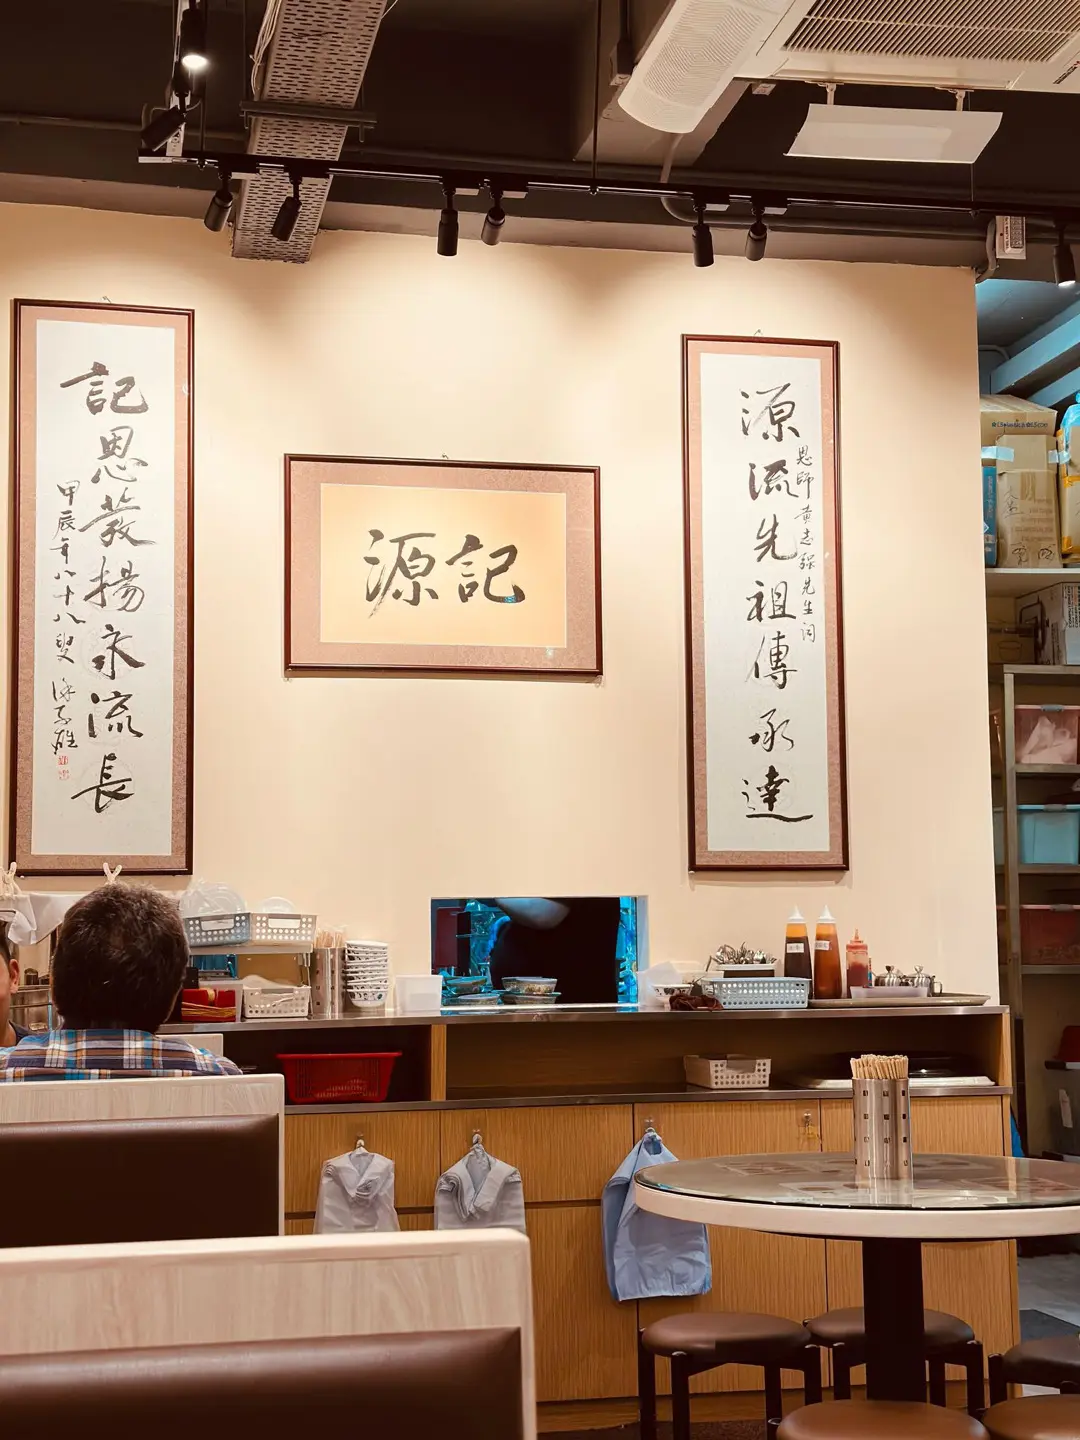 源流先祖傳承達
恩師黃志強先生詞
源記
記恩發揚永流長
甲辰年八十八叟 徐子雄